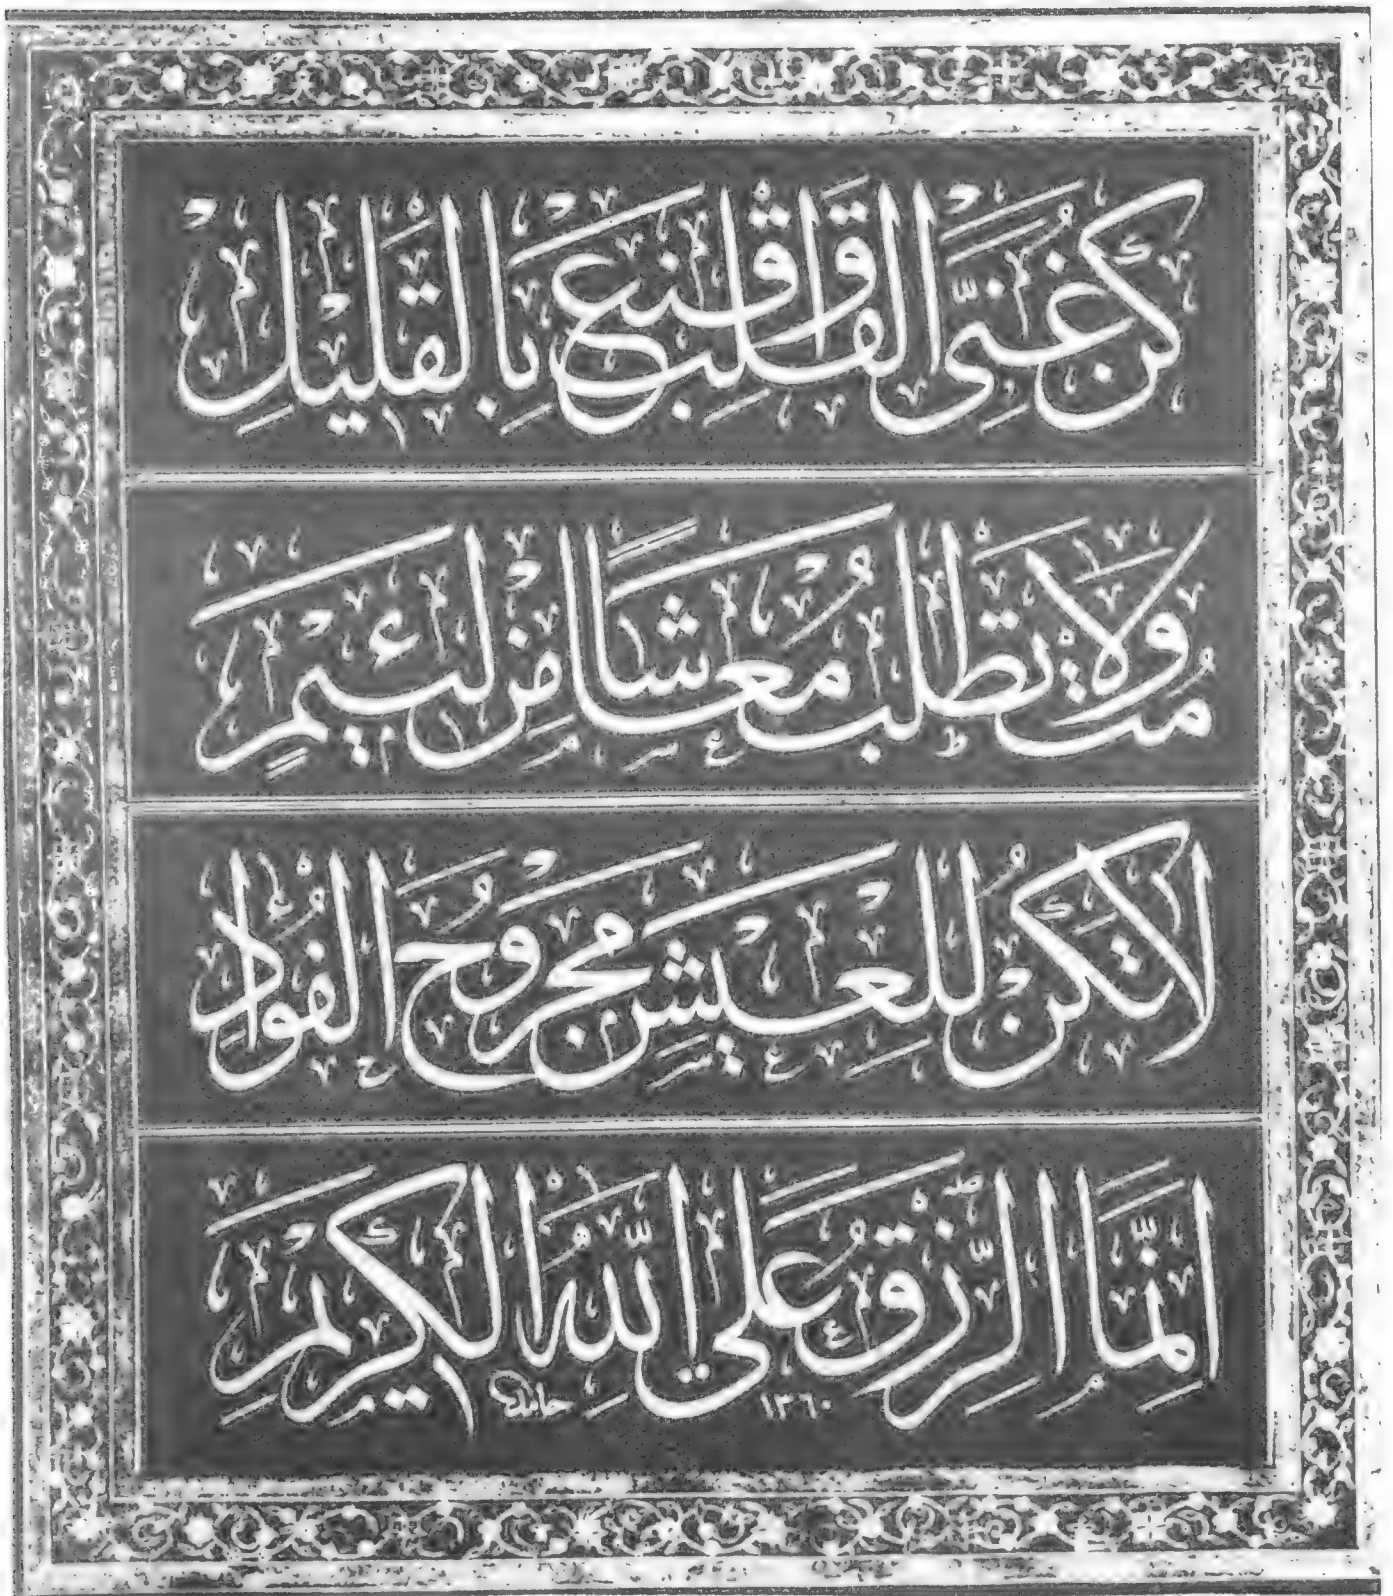 كن غنى القلب واقنع بالقليل
مت ولا تطلب معاشا من لئيم
لا تكن للعيش مجروح الفواد
انما الرزق على الله الكريم
حامد ١٣٦٠